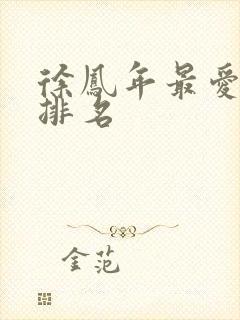 徐鳳年最愛
排名
金范